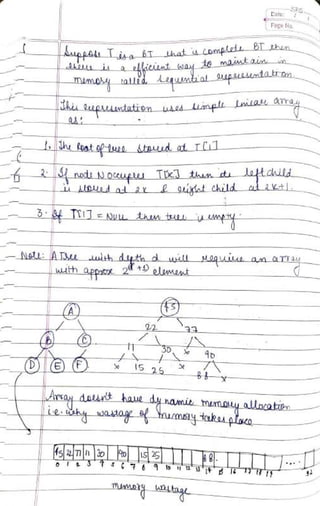 Date:
Page No.
Suppose T is a BT that is complete BT then
there is a efficient way to maintain in
memory called sequential representation
This representation uses simple linear array
as:
1. The Root of tree stored at T[1]
2. If node N occupies T[K] then its left child
is stored at 2K & right child at 2K+1.
3. If T[1] = NULL then tree is empty.
Note: A Tree with depth d will require an array
with approx 2^(d+1) element
A
B C
D E F
45
22 77
11 30 x 90
x 15 25 x 88 x
Array doesn't have dynamic memory allocation
i.e. why wastage of memory takes place
45 22 77 11 30 90 15 25 88
0 1 2 3 4 5 6 7 8 9 10 11 12 13 14 15 16 17 18 19
memory wastage